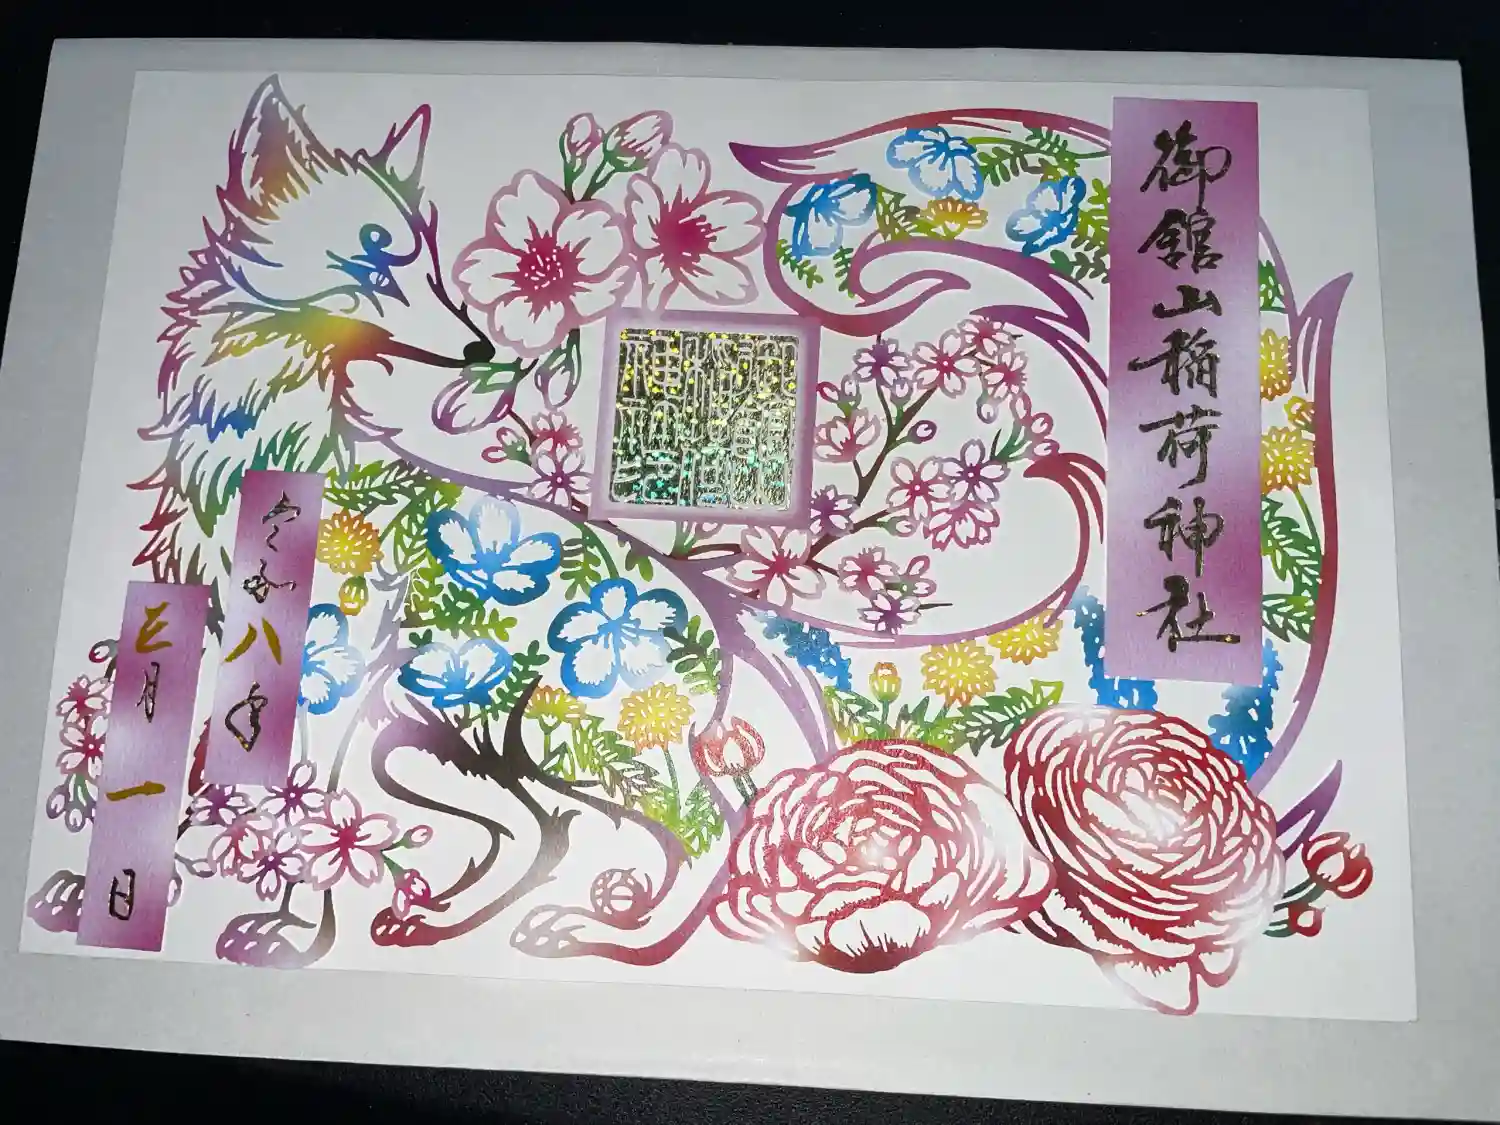 御舘山稲荷神社
令和八年
三月一日